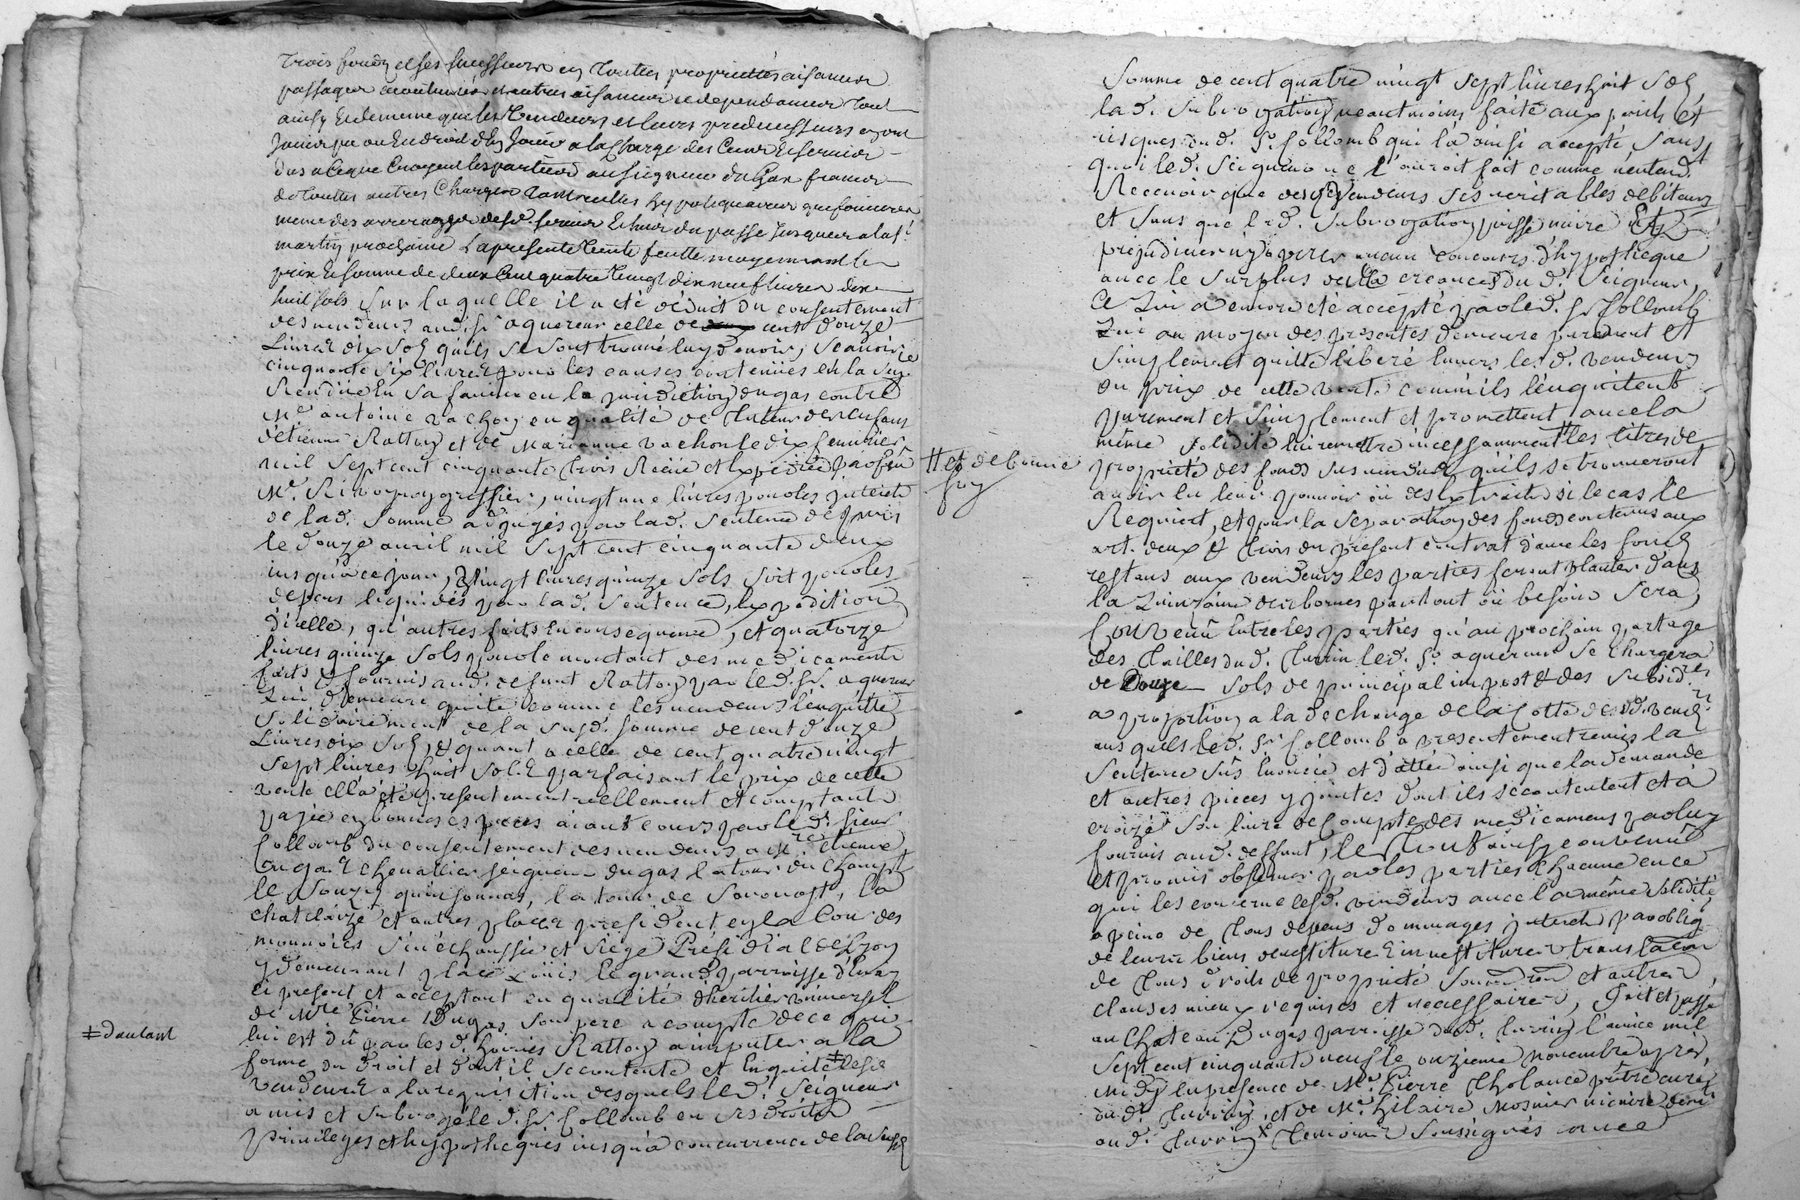 trois fonds et ses successeurs en toutes proprietés aisances
passages coutumes et autres aisances et dependances tout
ainsy et de meme que les vendeurs et leurs predecesseurs en ont
joui pu ou en droit d'en jouir a la charge des cens et servis
dus a ce que croyent les parties au seigneur du gas francs
de toutes autres charges tant reelles hypotequaires que foncieres
meme des arrerages desd. servis echus du passé jusques a la st.
martin prochaine La presente vente faitte moyennant le
prix et somme de deux cent quatre vingt dix neuf livres dix
huit sols sur laquelle il a eté déduit du consentement
des vendeurs aud. sr. aquereur celle de cent douze
Livres dix sols qu'ils se sont trouvé luy devoir, scavoir
cinquante six livres pour les causes contenües en la sen
rendüe en sa faveur en la juridiction du gas contre
Me. antoine vachon en qualité de tuteur des enfans
d'etienne Ratton et de marianne vachon le dix
mil sept cent cinquante trois Reçüe et expediée par
Me. greffier, vingt une livres pour les interets
de lad. somme adjugés par lad. sentence depuis
le douze avril mil sept cent cinquante deux
jusqu'a ce jour, vingt livres quinze sols soit pour les
depens liquidés par lad. sentence, expedition
d'icelle, qu'autres faits en consequence, et quatorze
livres quinze sols pour le montant des medicaments
faits et fournis aud. defunt Ratton par led. sr. aquereur
qui demeure quitte comme les vendeurs l'enquitte
solidairement de la susd. somme de cent douze
Livres dix sols, et quant a celle de cent quatre vingt
sept livres huit sols parfaisant le prix de cette
vente ella eté presentement reellement et comptant
payée en bonnes especes aiant cours par led. sieur
Collomb du consentement des vendeurs a Mre. etienne
dugas chevallier seigneur du gas la tour du champt
le souzy quinsonnas, la tour de Savonost, la
chatelaize et autres places president en la Cour des
monnoies senechaussée et siege Presidial de Lyon
y demeurant place Loüis le grand parroisse d'Enay
ci present et acceptant en qualité d'heritier universel
de Mre Pierre Dugas son pere a compte de ce qui
lui est dû par les d. hoiries Rattoy a imputer a la
forme du droit et dont il se contente et en quitte ‡ lesd.
vendeurs a la requisition desquels led. Seigneur
a mis et subrogé led. sr. Collomb en ses droits
privileges et hypotheques jusqu'a concurrence de la susd.
‡ d'autant
somme de cent quatre vingt sept livres huit sols
lad. subrogation neantmoins faite aux perils et
risques dud. sr. Collomb qui l'a ainsi accepté sans
quoi led. Seigneur ne l'auroit fait comme n'entend
Recevoir que desd. vendeurs ses veritables debiteurs
et sans que lad. subrogation puisse nuire et
prejudicier ny operer aucun concours d'hypotheque
avec le surplus de la creance dud. Seigneur,
Ce qui a encore eté accepté par led. sr Collomb
qui au moyen des presentes demeure purement et
simplement quitte liberé envers lesd. vendeurs
du prix de cette vente comm'ils l'enquitent
purement et simplement et promettent avec la
même solidité lui remettre incessamment # les titres de
propriete des fonds sus vendus qu'ils se trouveront
avoir en leur pouvoir où des extraits si le cas le
Requiert, et pour la separation des fonds contenus aux
art. deux & trois du present contrat d'avec les fonds
restans aux vendeurs les parties feront planter dans
la quinzaine des bornes partout où besoin sera,
Convenû entre les parties qu'au prochain partage
des tailles dud. thurrin led. sr. aquereur se chargera
de Douze sols de principal impost & des subsid.res
a proportion a la decharge de la cotte desd. vend.rs
auxquels led. sr Collomb a presentement remis la
sentence sus enoncée et d'attee ainsi que la demande
et autres pieces y jointes dont ils se contentent et a
croizé son livre de Compte des medicamens par luy
fournis aud. deffunt, le tout ainsy convenu
et promis observer par les parties chacune en ce
qui les concerne lesd. vendeurs avec la même solidité,
a peine de tous depens dommages interets par oblig.
de leurs biens devestiture investiture translation
de tous droits de propriété soumission et autres
clauses mieux requises et necessaires, fait et passé
au Chateau Dugas parroisse dud. thurin l'année mil
sept cent cinquante neuf le onzieme novembre apres
midy en presence de Mre. Pierre Cholance prêtre curé
dud. thurins, et de Mre. hilaire Mosnier vicaire
aud. thurin temoins soussignés avec
# et de bonne
foy